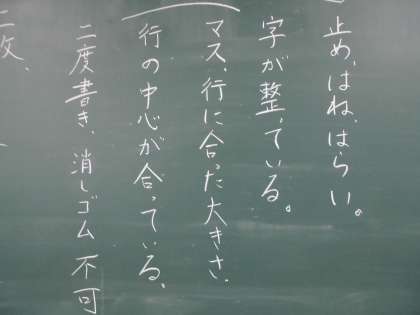 止め、はね、はらい。
字が整っている。
マス、行に合った大きさ、
行の中心が合っている、
二度書き、消しゴム不可